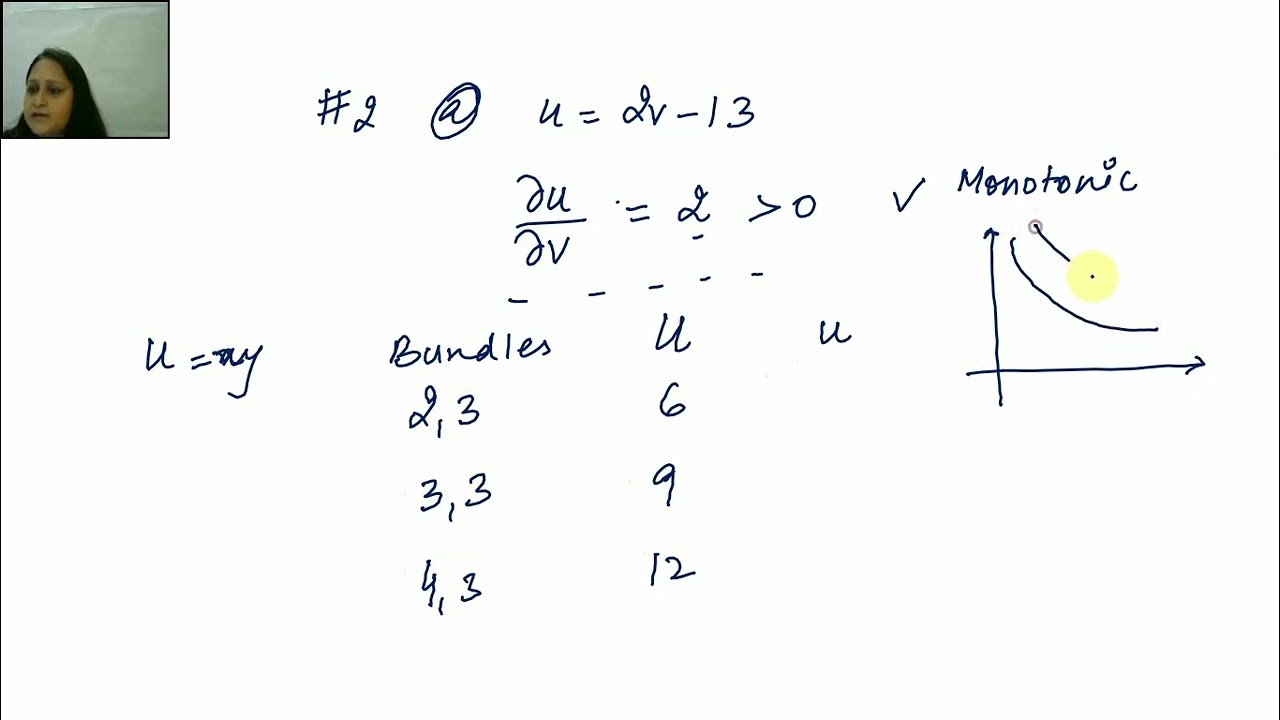 #2 ⓐ u = 2v - 13
∂u/∂v = 2 > 0 ✓ Monotonic
u = xy Bundles U u
2,3 6
3,3 9
4,3 12